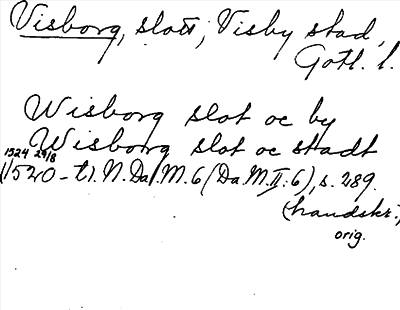 Visborg, slott, Visby stad,
Gotl. l.
Wisborg slot oc by
Wisborg slot oc stadt
1524 29/8
1/520 - tl. N. Da. M. 6 (Da M. II: 6), s. 289.
(handskr.;
orig.